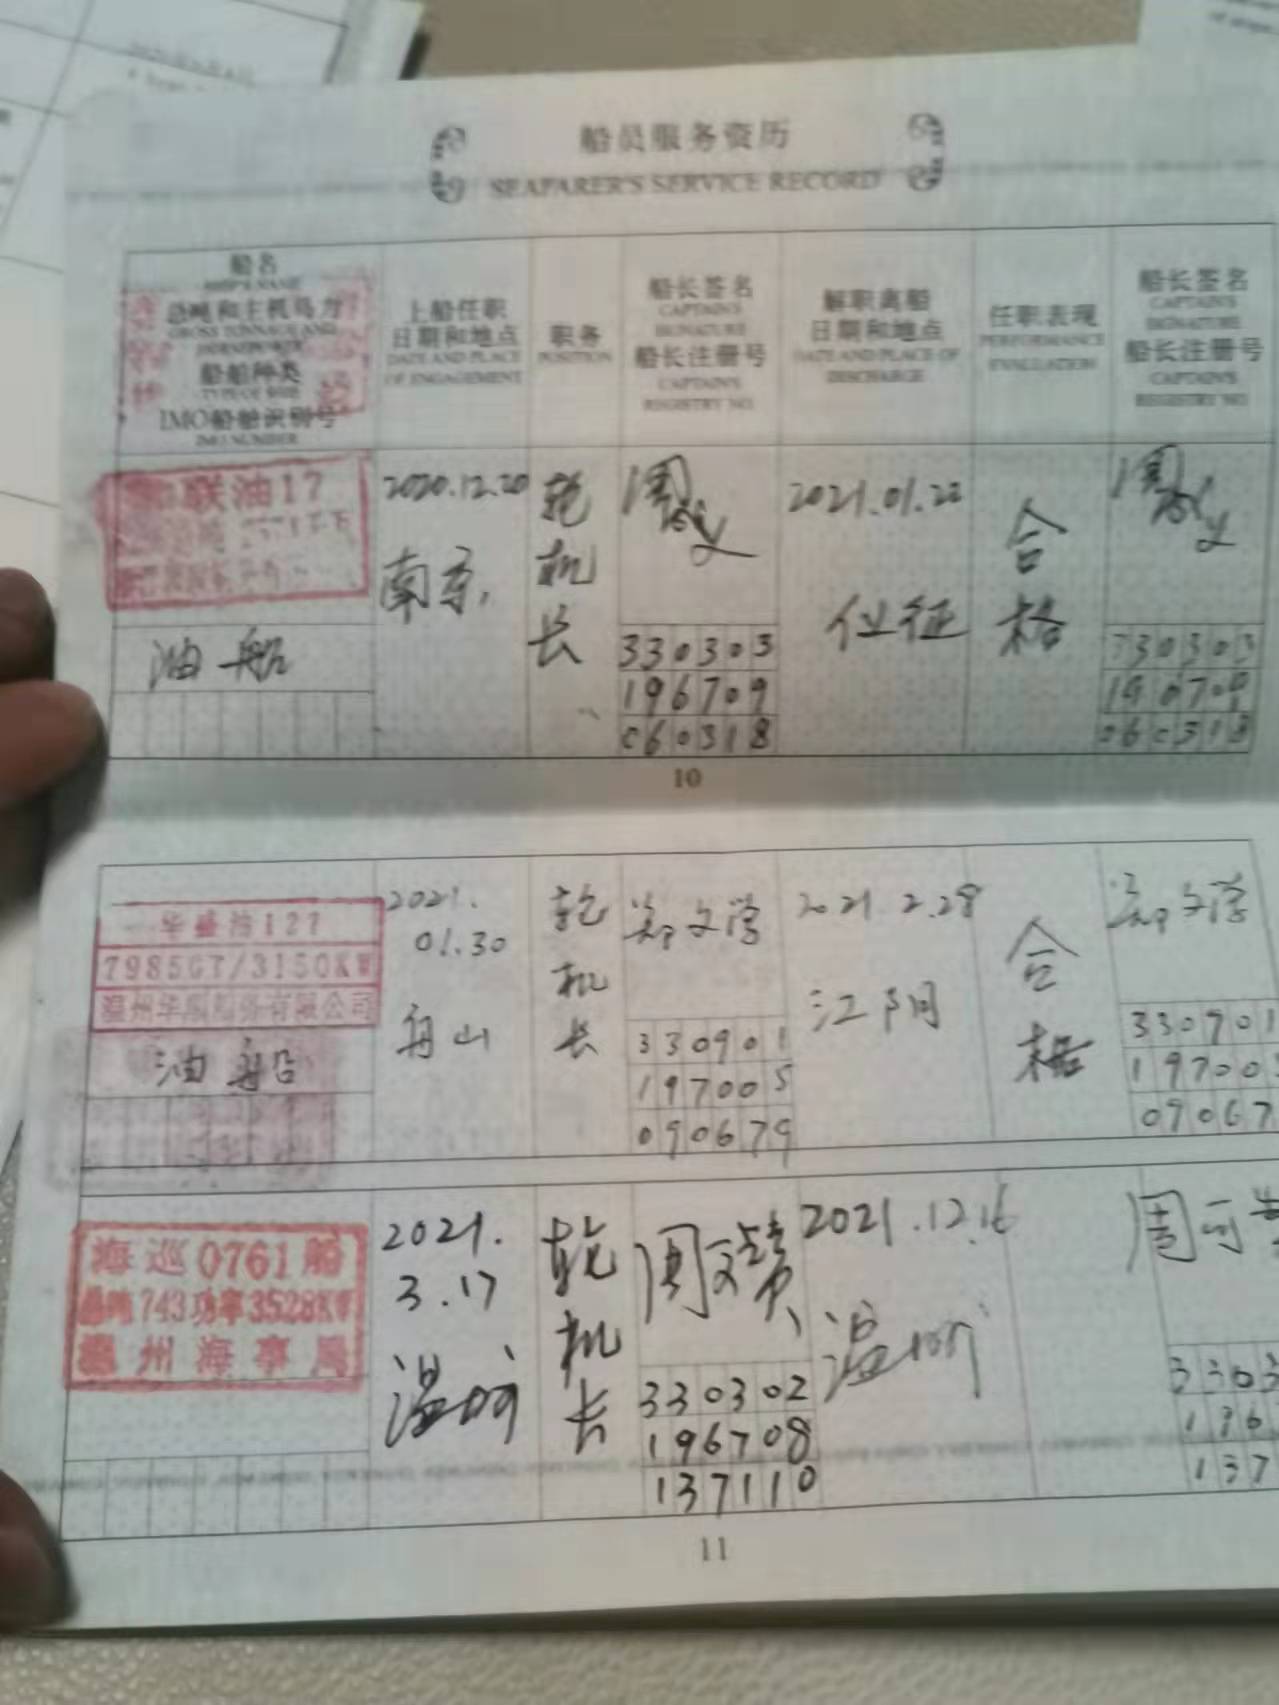 船员服务资历
SEAFARER'S SERVICE RECORD
船名
SHIP'S NAME
总吨和主机马力
GROSS TONNAGE AND
HORSEPOWER
船舶种类
TYPE OF SHIP
IMO船舶识别号
IMO NUMBER
上船任职
日期和地点
DATE AND PLACE
OF ENGAGEMENT
职务
POSITION
船长签名
CAPTAIN'S
SIGNATURE
船长注册号
CAPTAIN'S
REGISTRY NO
解职离船
日期和地点
DATE AND PLACE OF
DISCHARGE
任职表现
PERFORMANCE
EVALUATION
船长签名
CAPTAIN'S
SIGNATURE
船长注册号
CAPTAIN'S
REGISTRY NO
联油17
油船
2020.12.20
南京
轮机长
330303
196709
060318
2021.01.22
仪征
合格
330303
196709
060318
10
华盛油127
7985GT/3150KW
油船
2021.
01.30
舟山
轮机长
郑文学
330901
197005
090679
2021.2.28
江阴
合格
郑文学
330901
19700
09067
海巡0761船
总吨743功率3528KW
温州海事局
2021.
3.17
温州
轮机长
330302
196708
137110
2021.12.16
温州
3303
196
137
11